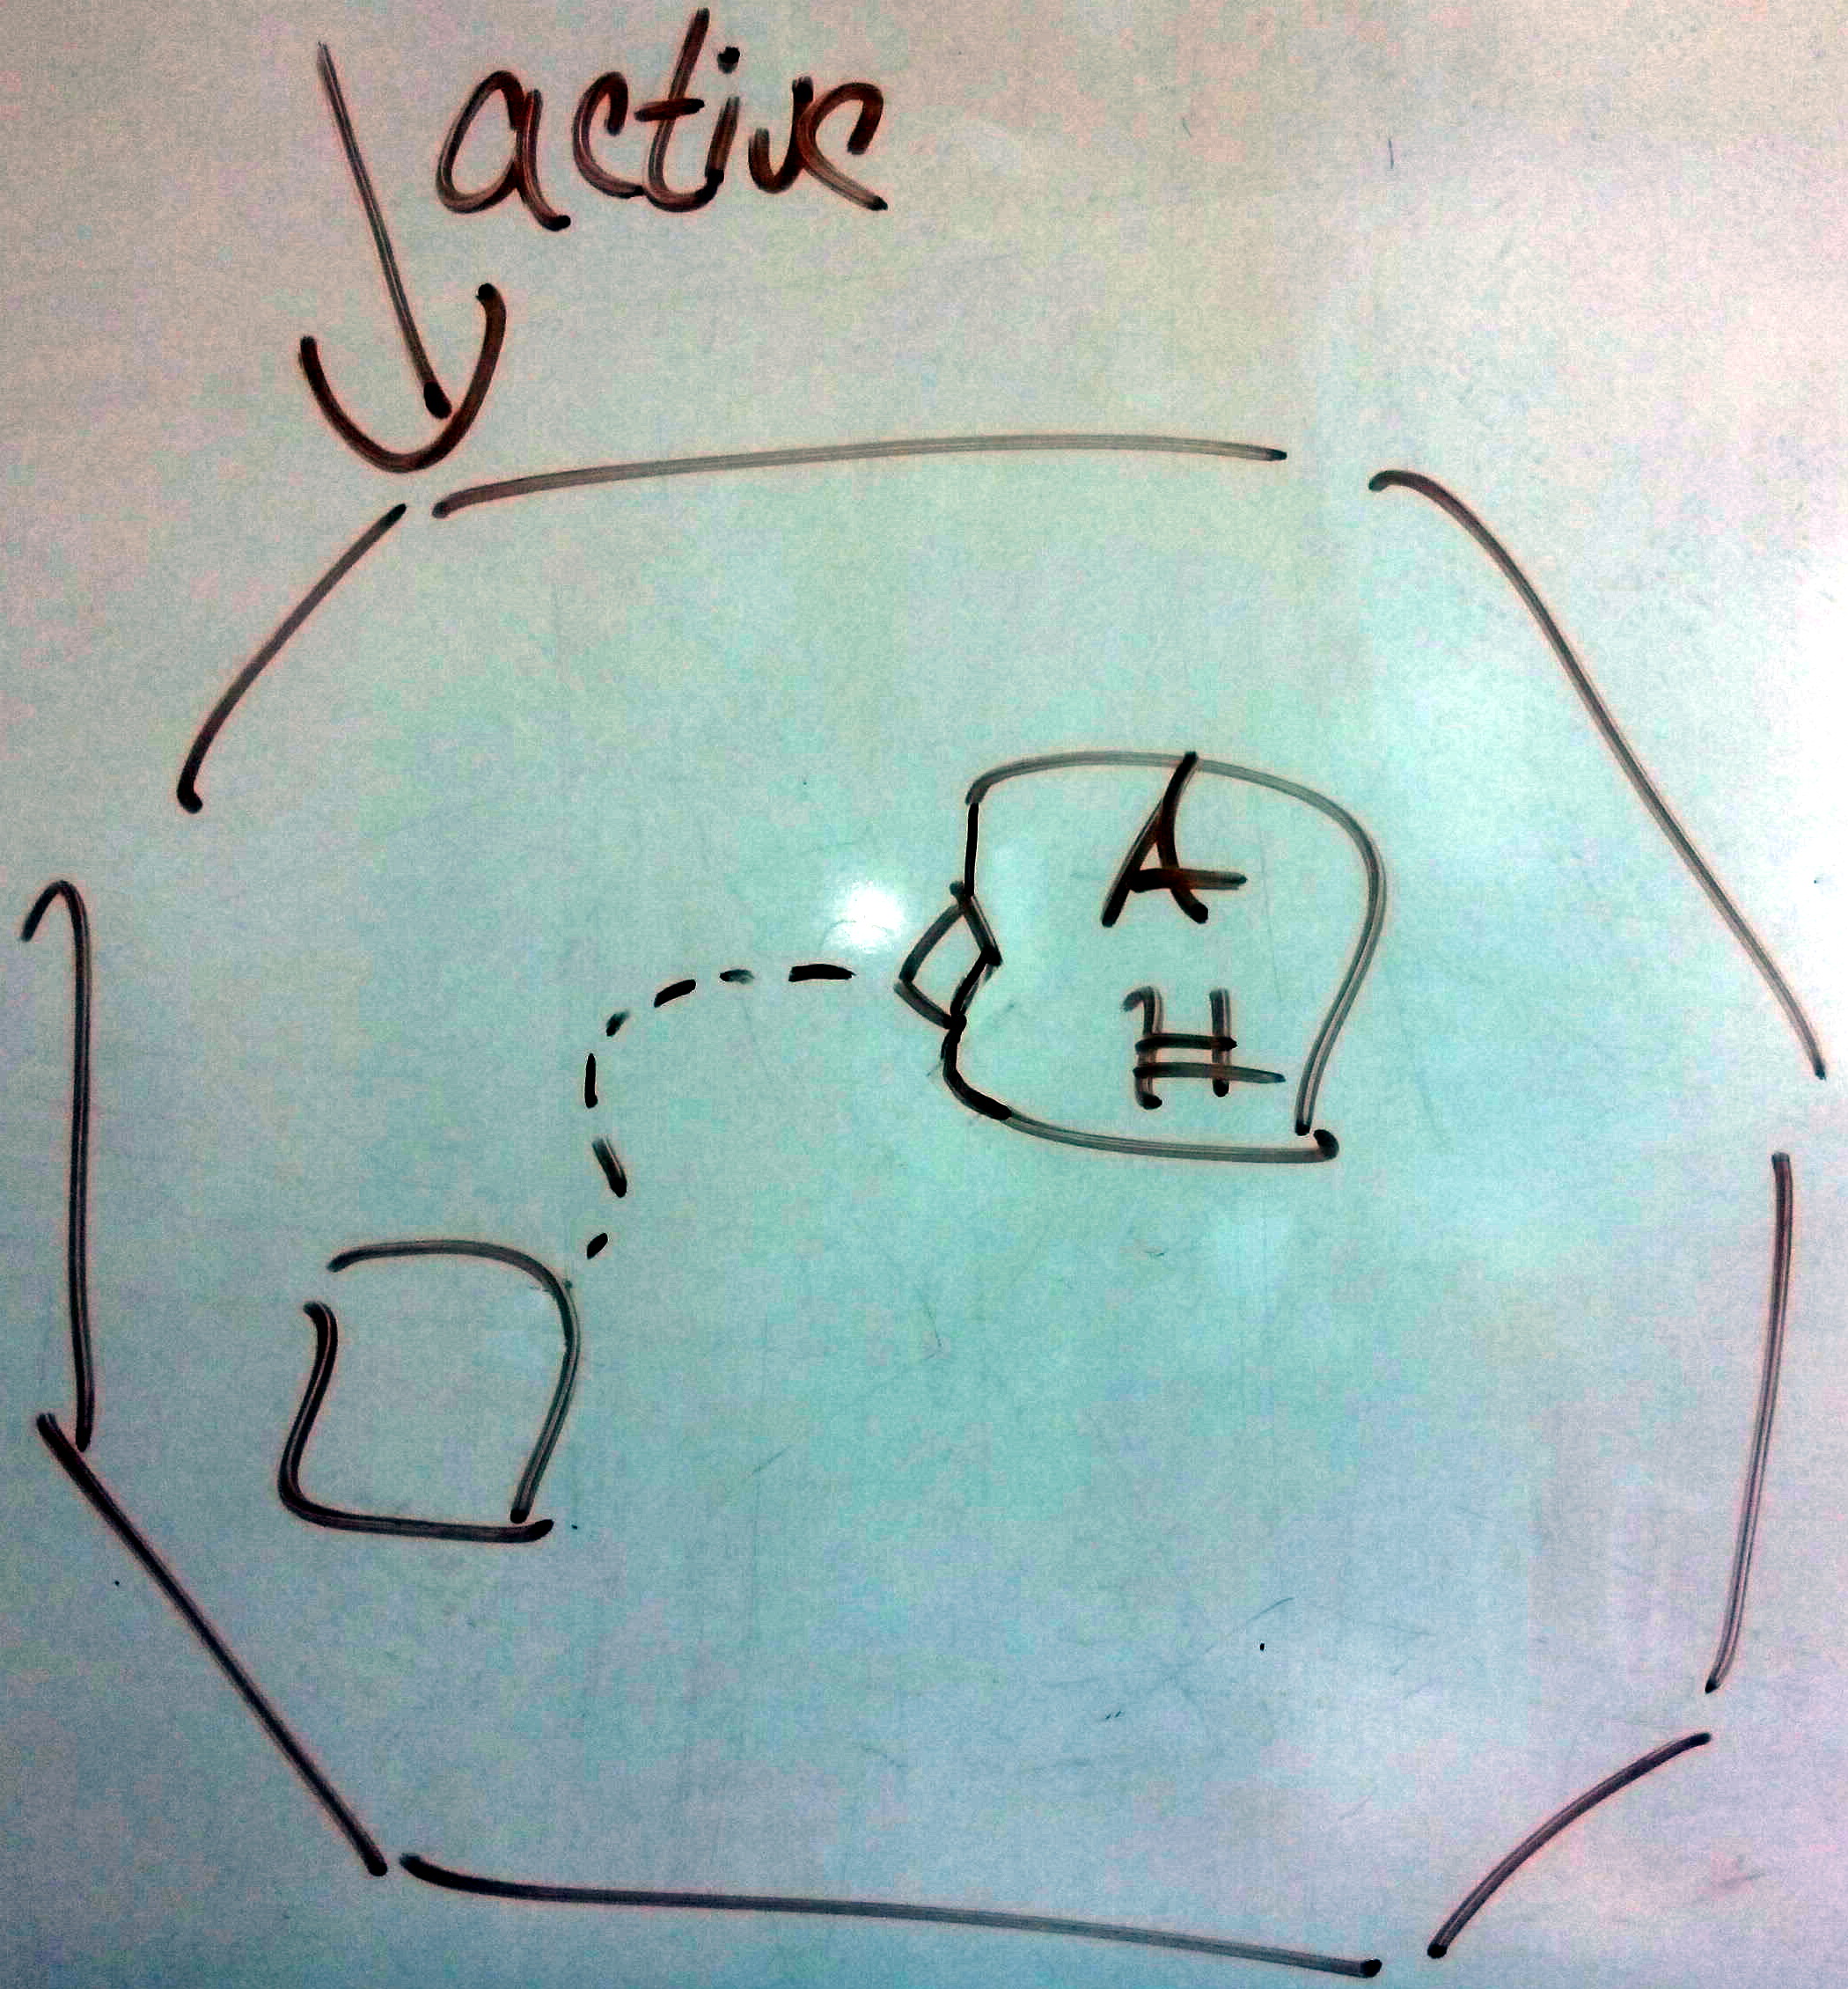 active
A
#